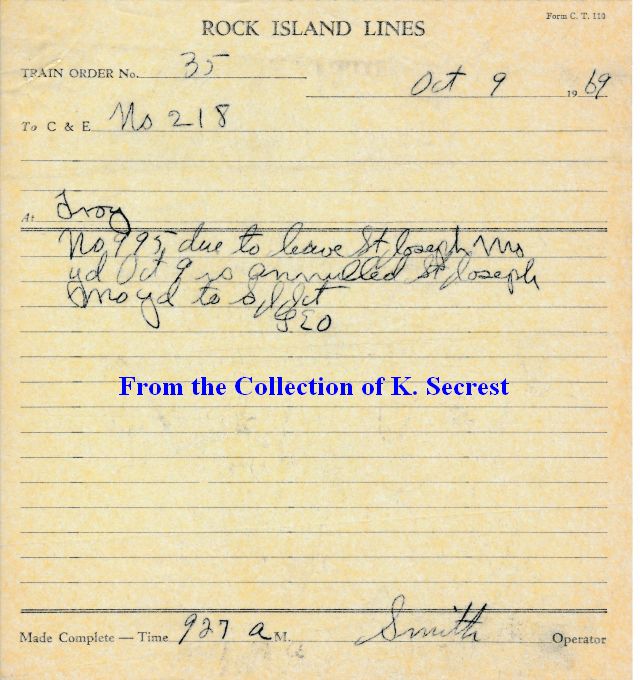 Form C. T. 110
ROCK ISLAND LINES
TRAIN ORDER No. 35
Oct 9 1969
To C & E No 218
At Troy
No 995 due to leave St Joseph Mo
yd Oct 9 is annulled St Joseph
Mo yd to Jct
From the Collection of K. Secrest
Made Complete — Time 927 a M. Smith Operator